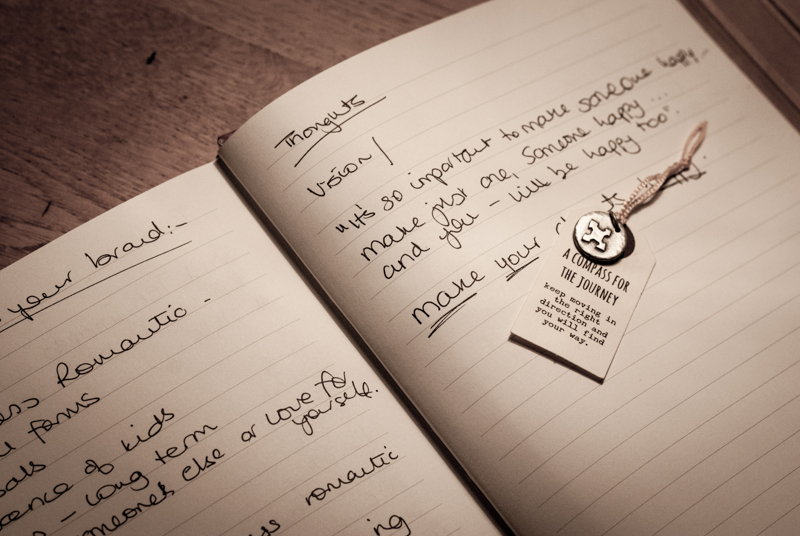 your brand:-
Romantic -
forms
of kids
- long term
someones else or love for
yourself.
romantic
ing
Thoughts
Vision/
"It's so important to make someone happy.-
make just one, someone happy...
and you - will be happy too".
make your
A COMPASS FOR
THE JOURNEY
keep moving in
the right
direction and
you will find
your way.